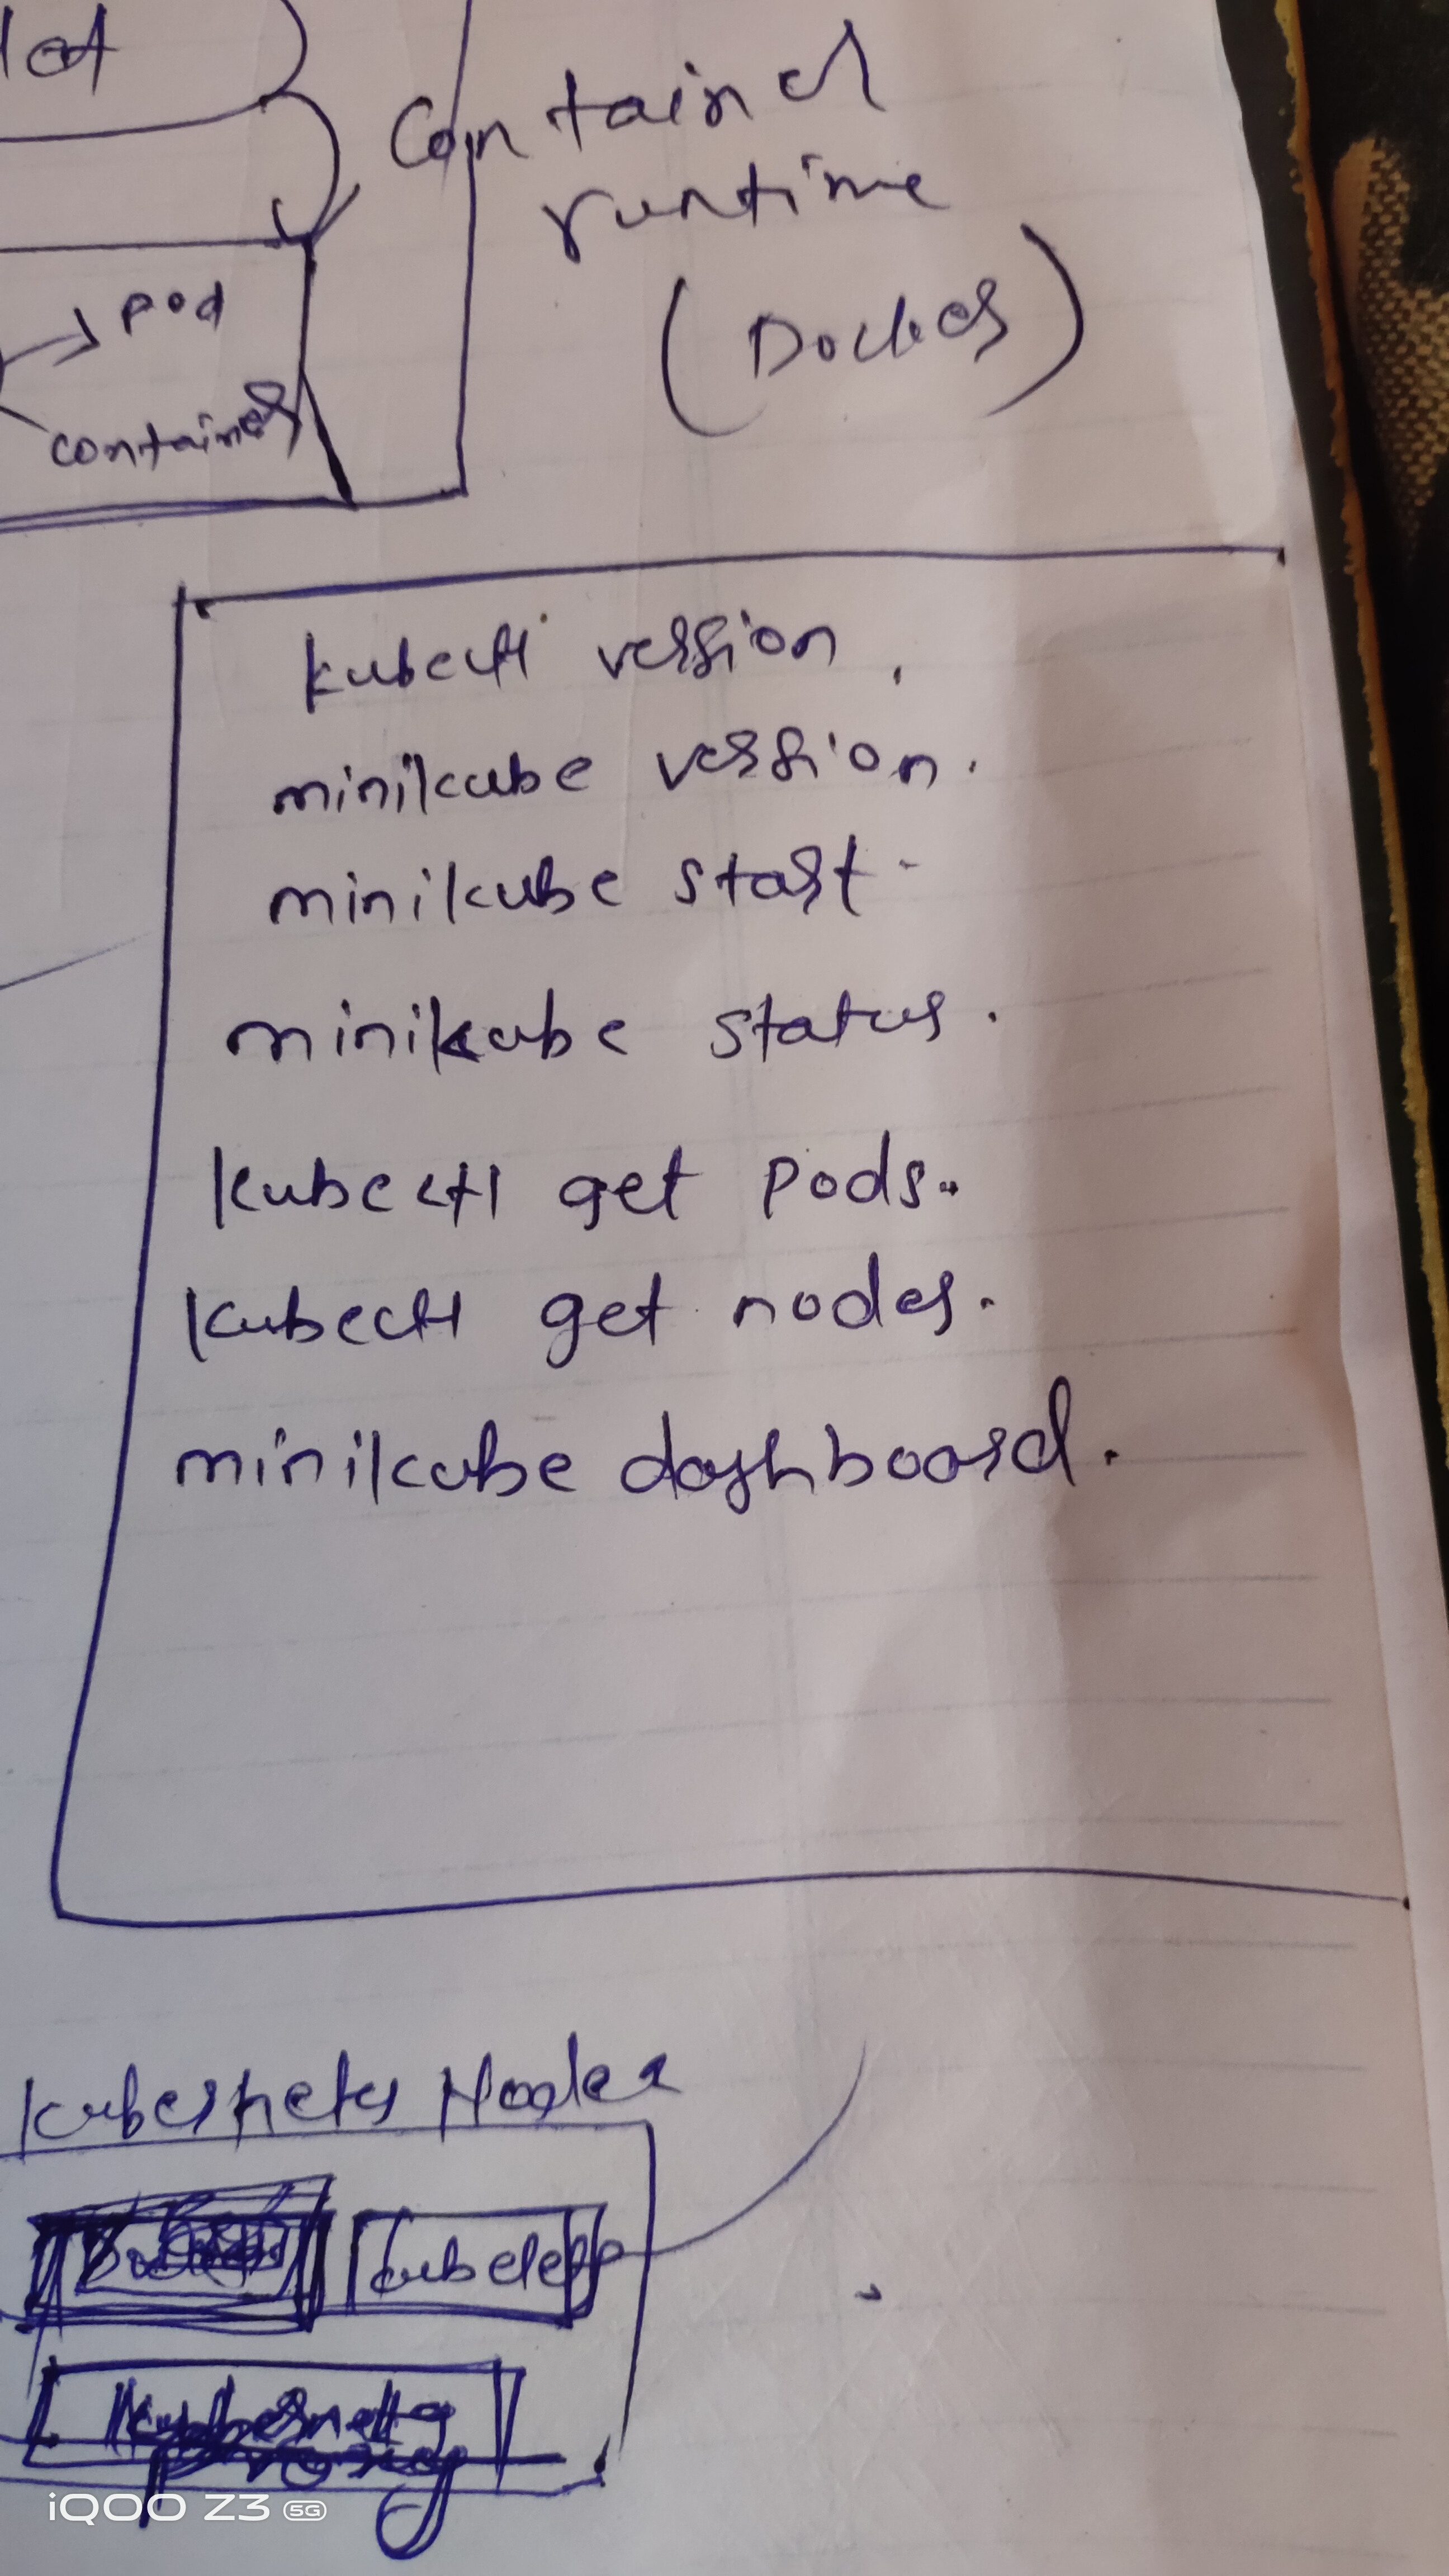 let
Container
runtime
(Docker)
pod
container
kubectl version.
minikube version.
minikube start.
minikube status.
kubectl get pods.
kubectl get nodes.
minikube dashboard.
Kubernetes Nodes
kubelet
Kubernetes
proxy
iQOO Z3 5G